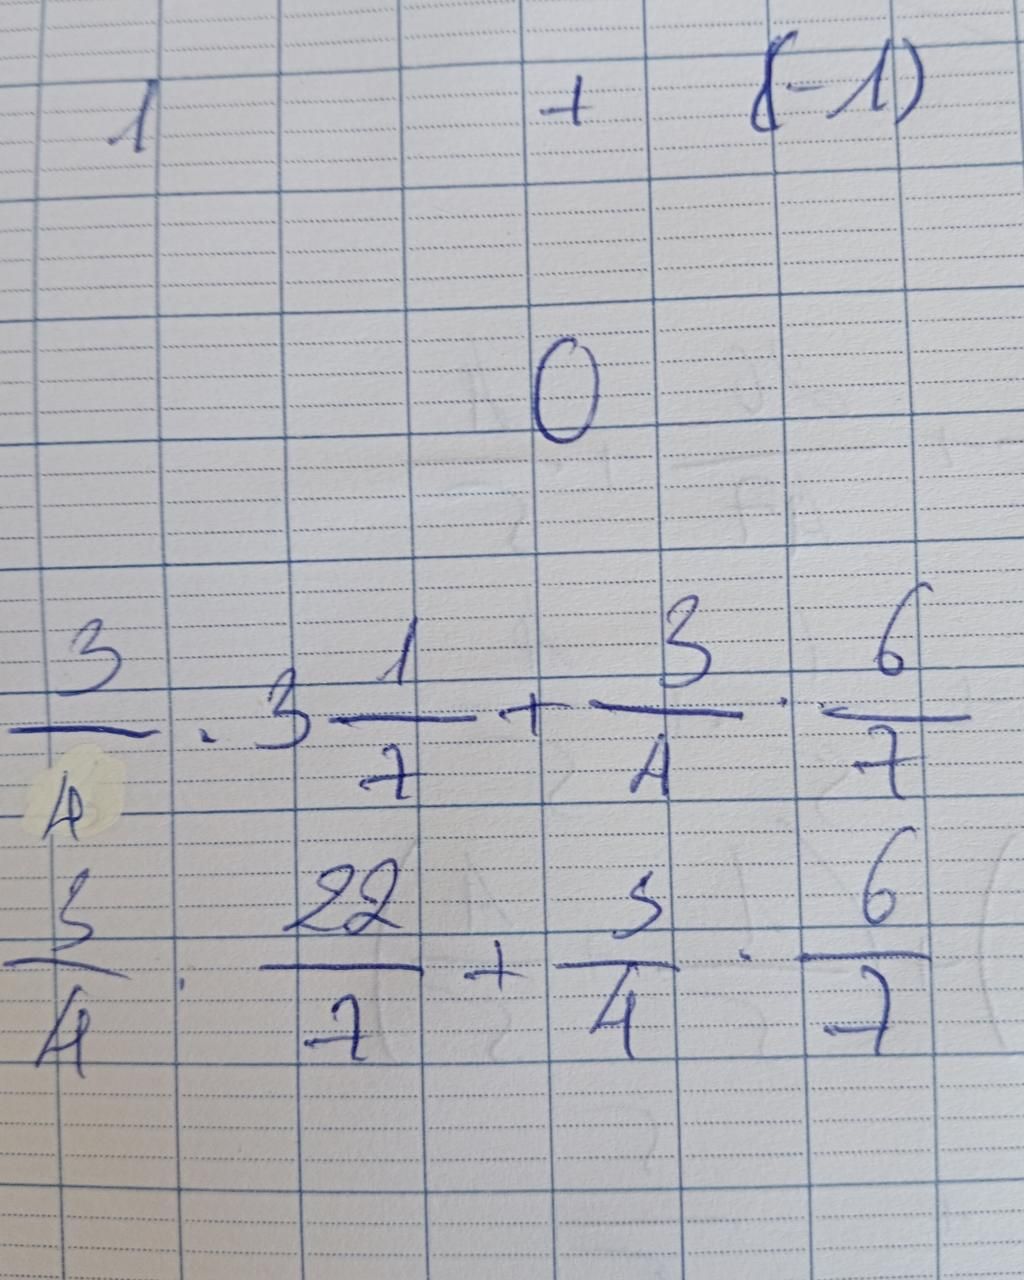 1 + (-1)
0
3/4 . 3 1/7 + 3/4 . 6/7
3/4 . 22/7 + 3/4 . 6/7